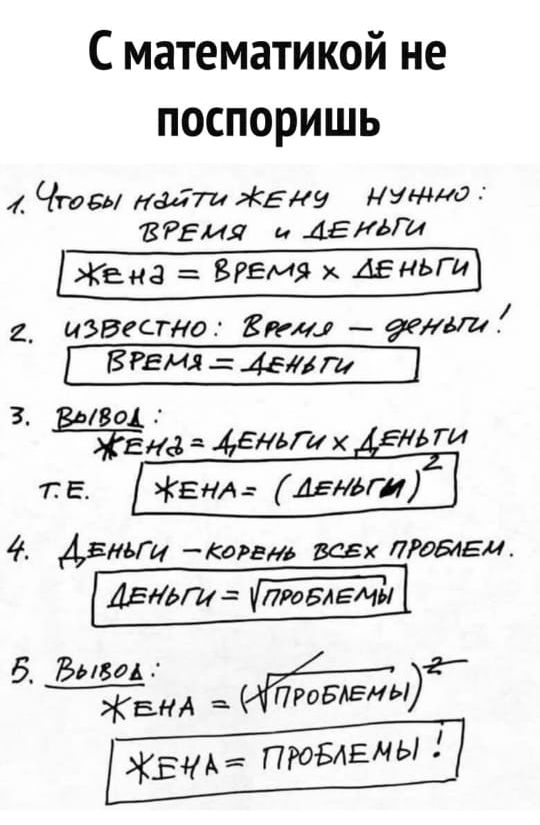 С математикой не
поспоришь
1. Чтобы найти жену нужно:
ВРЕМЯ и ДЕНЬГИ
Жена = ВРЕМЯ x ДЕНЬГИ
2. известно: Время – деньги!
ВРЕМЯ = ДЕНЬГИ
3. Вывод:
ЖЕНА = ДЕНЬГИ x ДЕНЬГИ
т.е. ЖЕНА = (ДЕНЬГИ)²
4. ДЕНЬГИ – КОРЕНЬ ВСЕХ ПРОБЛЕМ.
ДЕНЬГИ = √ПРОБЛЕМЫ
5. Вывод:
ЖЕНА = (√ПРОБЛЕМЫ)²
ЖЕНА = ПРОБЛЕМЫ!